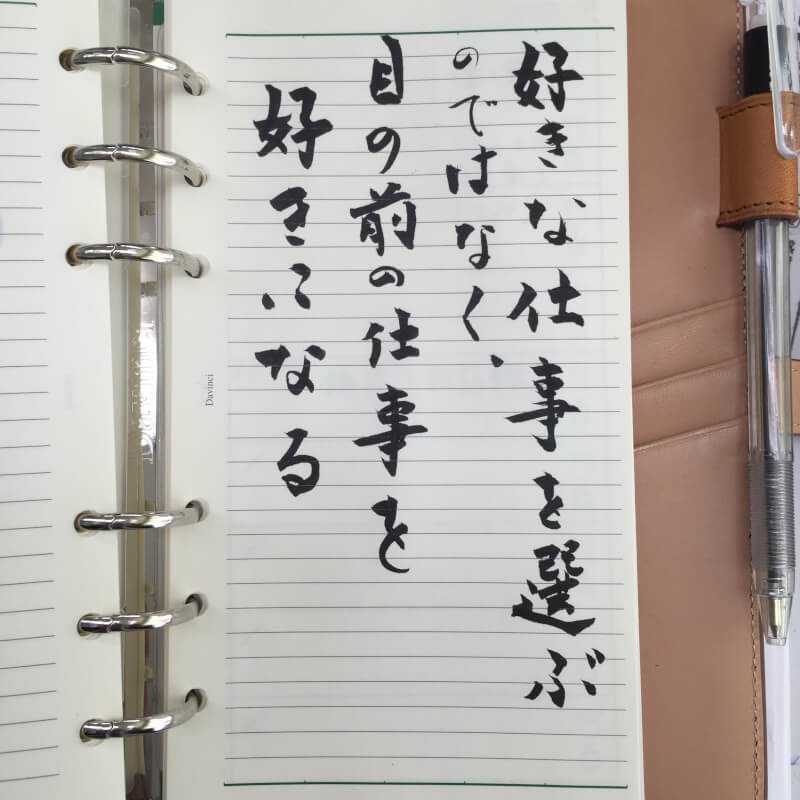 好きな仕事を選ぶ
のではなく、
目の前の仕事を
好きになる
Davinci